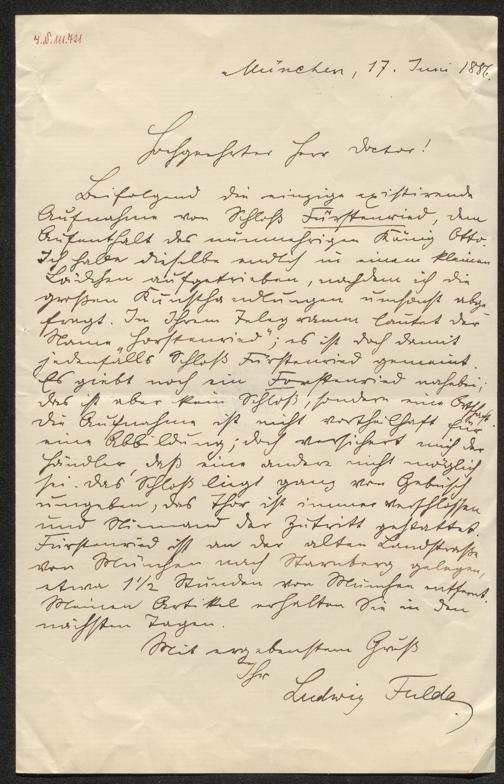 J.N. 111.721
München, 17. Juni 1886.
Hochgeehrter Herr Doctor!
Beifolgend die einzige existirende
Aufnahme von Schloß Fürstenried, dem
Aufenthalt des nunmehrigen König Otto.
Ich habe dieselbe endlich in einem kleinen
Lädchen aufgetrieben, nachdem ich die
großen Kunsthandlungen umsonst abge-
fragt. In Ihrem Telegramm lautet der
Name „Forstenried"; es ist doch damit
jedenfalls Schloß Fürstenried gemeint.
Es giebt noch ein Forstenried nahebei;
das ist aber kein Schloß, sondern eine Ortschaft.
Die Aufnahme ist nicht vortheilhaft für
eine Abbildung; doch versichert mich der
Händler, daß eine andere nicht möglich
sei. Das Schloß liegt ganz von Gebüsch
umgeben, das Thor ist immer verschlossen
und Niemand der Zutritt gestattet.
Fürstenried ist an der alten Landstraße
von München nach Starnberg gelegen,
etwa 1 1/2 Stunden von München entfernt.
Meinen Artikel erhalten Sie in den
nächsten Tagen.
Mit ergebenstem Gruß
Ihr
Ludwig Fulda